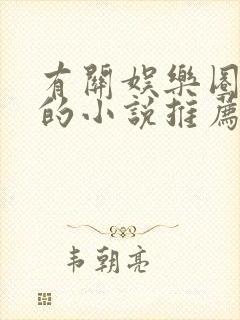 有關娛樂圈
的小說推薦
韦朝亮